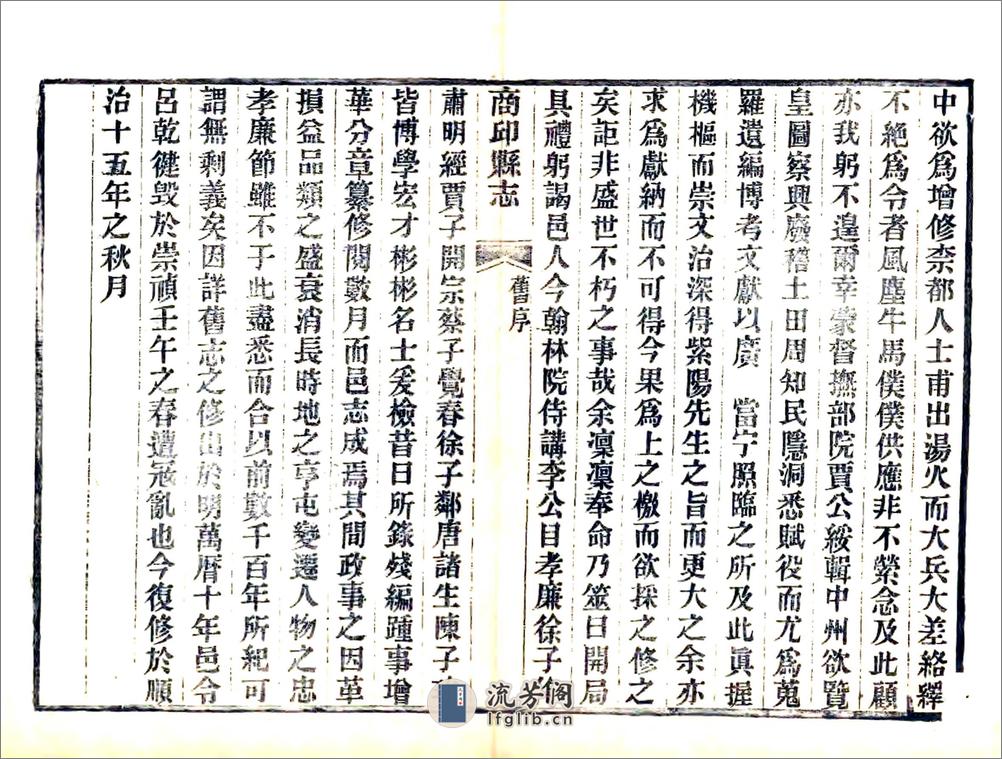 中欲爲增修柰都人士甫出湯火而大兵大差絡繹
不絕爲令者風塵牛馬僕僕供應非不縈念及此顧
亦我躬不遑爾幸蒙督撫部院賈公綏輯中州欲覽
皇圖察興廢稽土田周知民隱洞悉賦役而尤爲蒐
羅遺編博考文獻以廣　當宁照臨之所及此眞握
機樞而崇文治深得紫陽先生之旨而更大之余亦
求爲獻納而不可得今果爲上之檄而欲採之修之
矣詎非盛世不朽之事哉余凜凜奉命乃筮日開局
具禮躬謁邑人今翰林院侍講李公目孝廉徐子作
商邱縣志
舊序
肅明經賈子開宗蔡子覺春徐子鄰唐諸生陳子
皆博學宏才彬彬名士爰檢昔日所錄殘編踵事增
華分章纂修閱數月而邑志成焉其間政事之因革
損益品類之盛衰消長時地之亨屯變遷人物之忠
孝廉節雖不于此盡悉而合以前數千百年所紀可
謂無剩義矣因詳舊志之修出於明萬曆十年邑令
呂乾健毀於崇禎壬午之春遭冦亂也今復修於順
治十五年之秋月
流芳閣
lfglib.cn